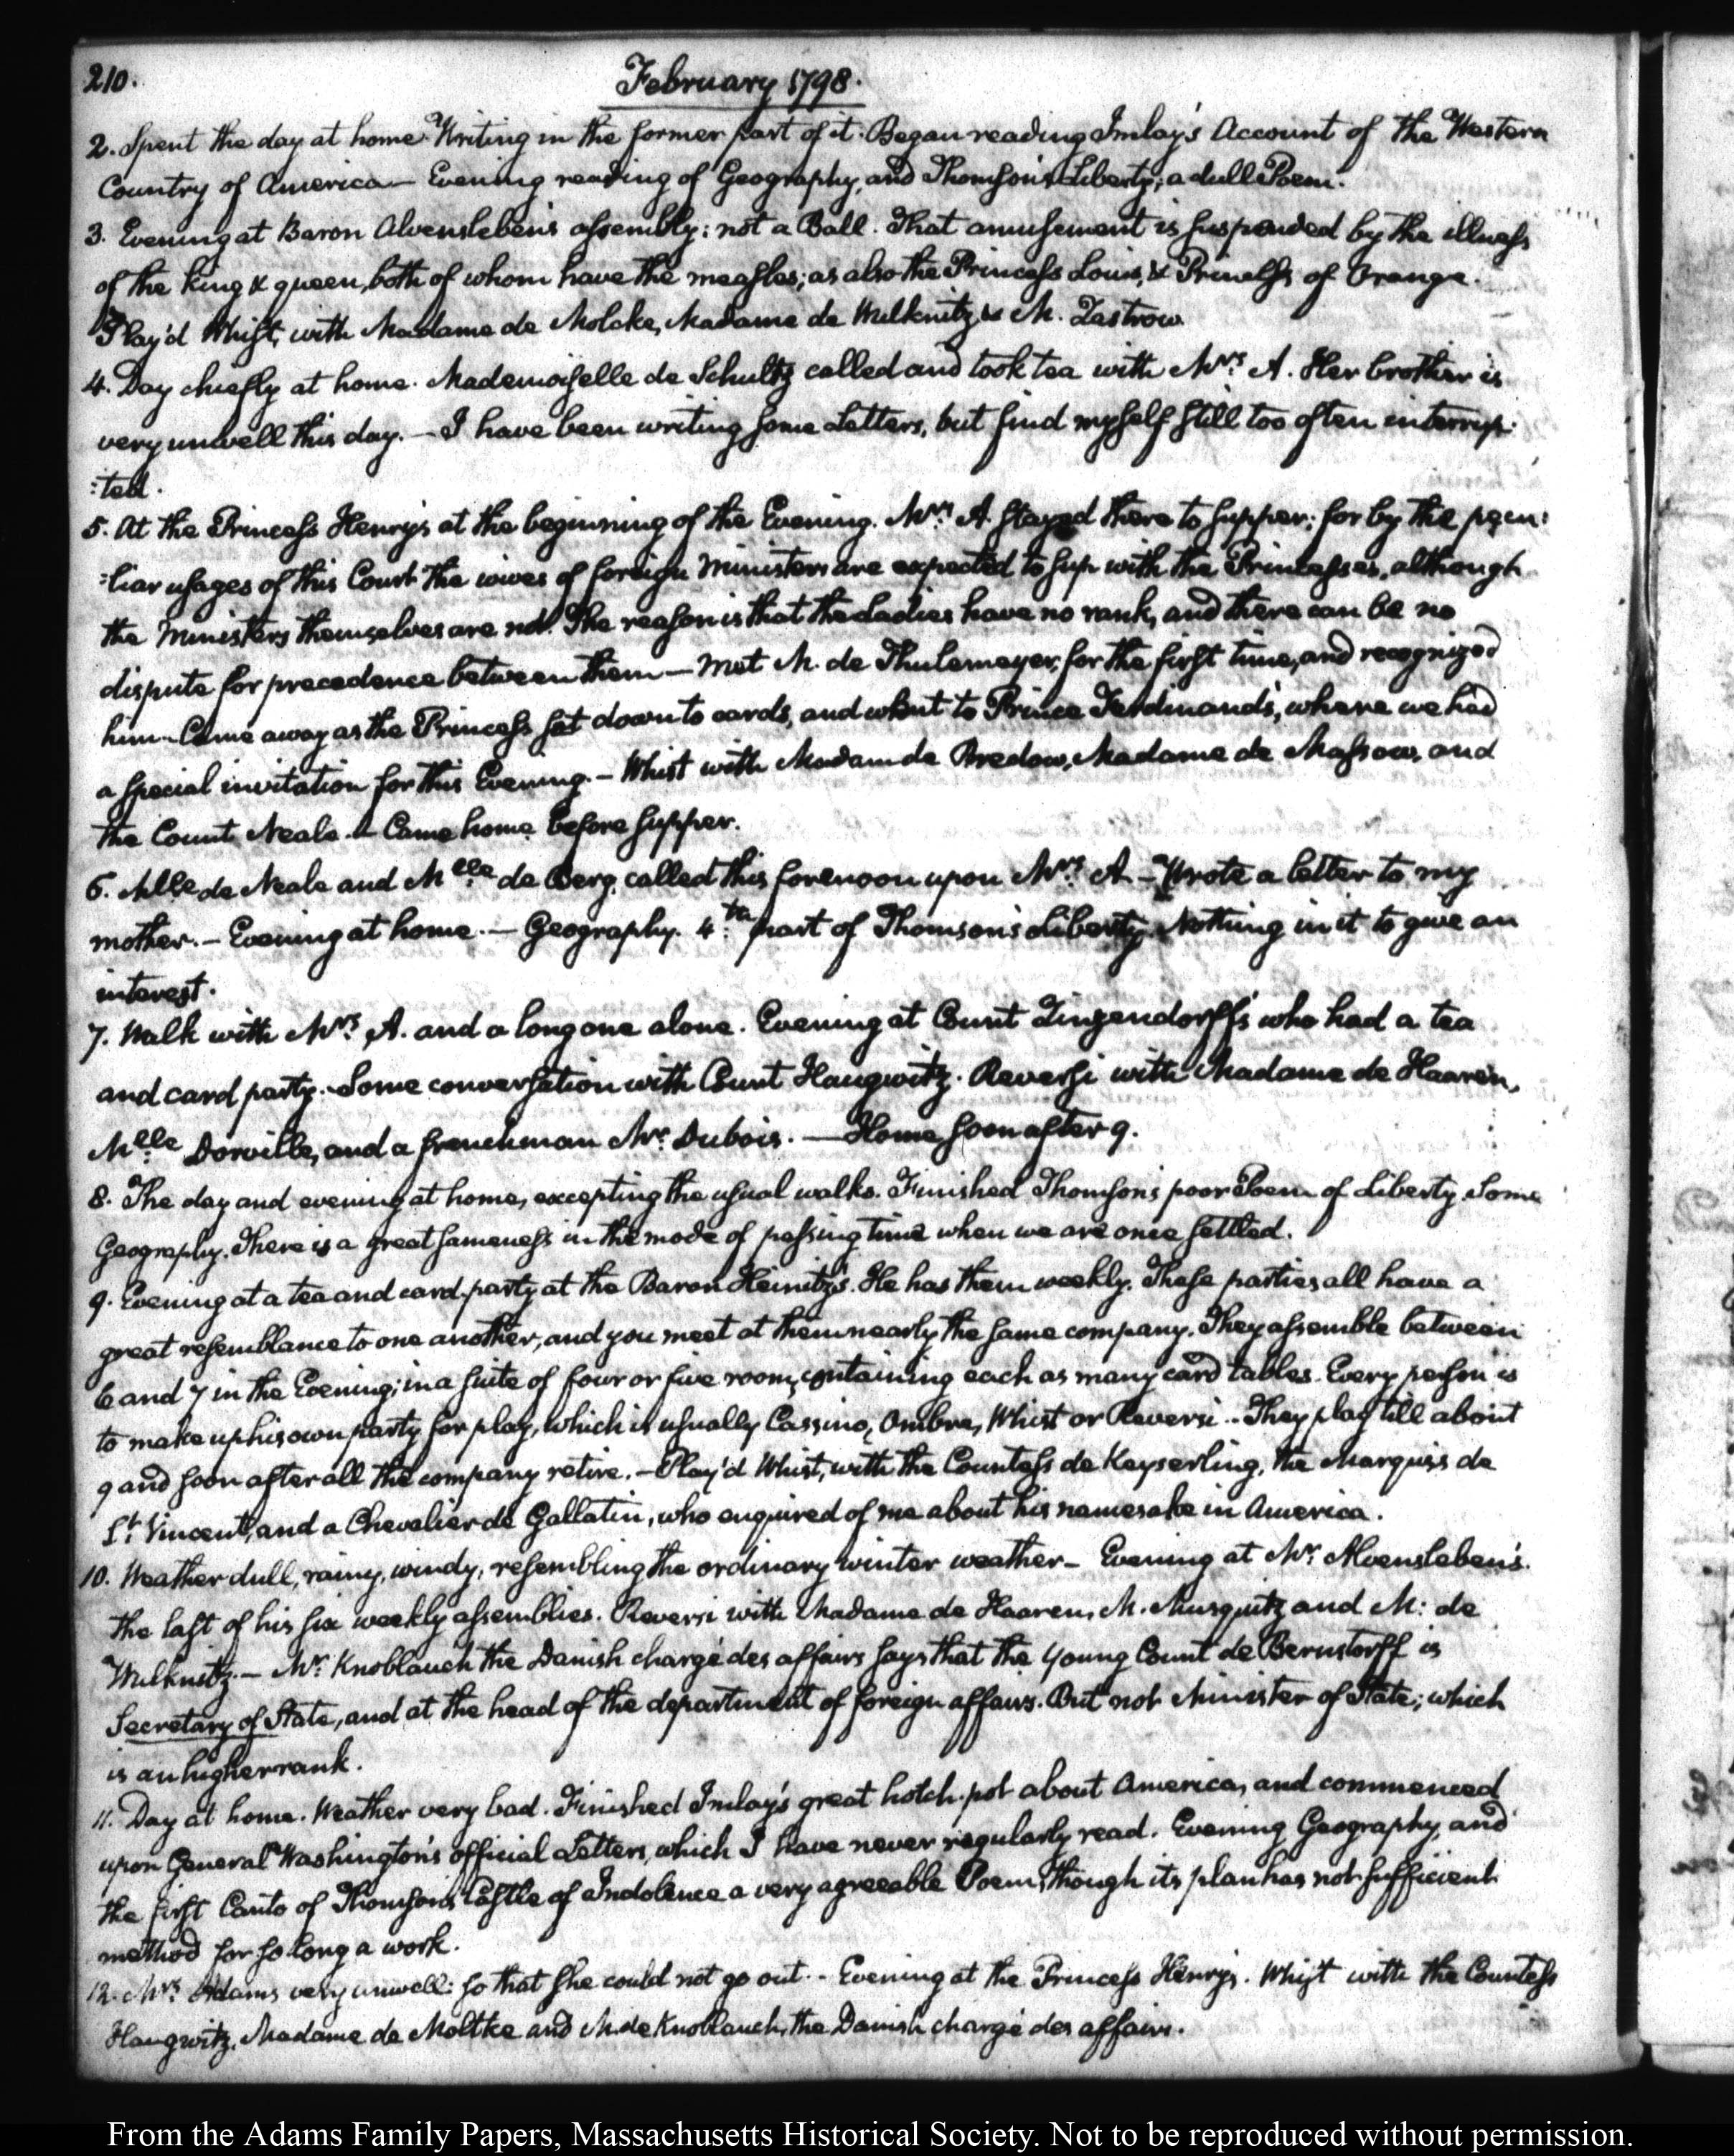 210.
February 1798.
2. Spent the day at home. Writing in the former part of it. Began reading Imlay's Account of the Western
Country of America— Evening reading of Geography, and Thomson's Liberty; a dull Poem.
3. Evening at Baron Alvensleben's assembly: not a Ball. That amusement is suspended by the illness
of the King & queen, both of whom have the measles; as also the Princess Louis, & Princess of Orange.
Play'd Whist, with Madame de Molcke, Madame de Wilknitz & M. Zastrow.
4. Day chiefly at home. Mademoiselle de Schultz called and took tea with Mrs. A. Her brother is
very unwell this day.— I have been writing some Letters, but find myself still too often interrup:
:ted.
5. At the Princess Henry's at the beginning of the Evening. Mrs. A. stayed there to supper; for by the pecu:
:liar usages of this Court the wives of foreign Ministers are expected to sup with the Princesses, although
the Ministers themselves are not. The reason is that the Ladies have no rank, and there can be no
dispute for precedence between them— Met M. de Thulemeyer, for the first time, and recognized
him. Came away as the Princess sat down to cards, and went to Prince Ferdinand's, where we had
a special invitation for this Evening.— Whist with Madam de Bredow, Madame de Massow, and
the Count Neale.— Came home before supper.
6. Mlle de Neale and Melle de Berg, called this forenoon upon Mrs. A.— Wrote a letter to my
mother.— Evening at home.— Geography. 4.th part of Thomson's Liberty. Nothing in it to give an
interest.
7. Walk with Mrs. A. and a long one alone. Evening at Count Zinzendorff's who had a tea
and card party. Some conversation with Count Haugwitz. Reversi with Madame de Haaren,
Melle Dorville, and a frenchman Mr. Dubois.— Home soon after 9.
8. The day and evening at home, excepting the usual walks. Finished Thomson's poor Poem of Liberty. Some
Geography. There is a great sameness in the mode of passing time when we are once settled.
9. Evening at a tea and card party at the Baron Heinitz's. He has them weekly. These parties all have a
great resemblance to one another, and you meet at them nearly the same company. They assemble between
6 and 7 in the Evening; in a suite of four or five rooms, containing each as many card tables. Every person is
to make up his own party for play, which is usually Cassino, Ombre, Whist or Reversi.. They play till about
9 and soon after all the company retire.— Play'd Whist, with the Countess de Keyserling, the Marquis de
St. Vincent, and a Chevalier de Gallatin, who enquired of me about his namesake in America.
10. Weather dull, rainy, windy, resembling the ordinary winter weather— Evening at Mr. Alvensleben's.
the last of his six weekly assemblies. Reversi with Madame de Haaren, M. Musquitz and M: de
Wilknitz.— Mr. Knoblauch the Danish chargé des affairs says that the young Count de Bernstorff is
Secretary of State, and at the head of the department of foreign affairs. But not Minister of State; which
is an higher rank.
11. Day at home. Weather very bad. Finished Imlay's great hotch-pot about America, and commenced
upon General Washington's official Letters, which I have never regularly read. Evening Geography, and
the first Canto of Thomson's Castle of Indolence a very agreeable Poem, though its plan has not sufficient
method for so long a work.
12. Mrs. Adams very unwell: so that she could not go out.— Evening at the Princess Henry's. Whist with the Countess
Haugwitz, Madame de Moltke and M. de Knoblauch, the Danish chargé des affairs.
From the Adams Family Papers, Massachusetts Historical Society. Not to be reproduced without permission.